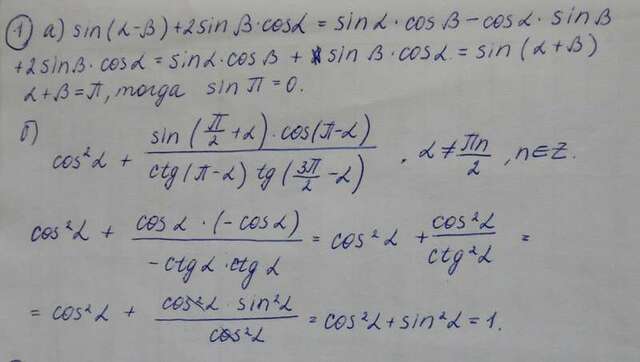 ① а) sin(α-β)+2sinβ·cosα = sinα·cosβ-cosα·sinβ
+2sinβ·cosα = sinα·cosβ + sinβ·cosα = sin(α+β)
α+β=π, тогда sinπ=0.
б) cos²α + (sin(π/2+α)·cos(π-α))/(ctg(π-α) tg(3π/2-α)) , α≠πn/2, n∈Z.
cos²α + (cosα·(-cosα))/(-ctgα·ctgα) = cos²α + cos²α/ctg²α =
= cos²α + (cos²α·sin²α)/cos²α = cos²α+sin²α=1.